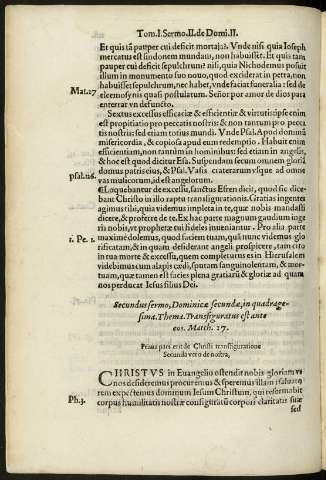 Tom.I.Sermo.II.de Domi.II.
Et quis tã pauper cui deficit mortaja? Vnde nisi quia Ioseph
mercatus est sindonem mundam, non habuisset. Et quis tam
pauper cui deficit sepulchrum? nisi, quia Nichodemus posuit
illum in monumento suo nouo, quod exciderat in petra, non
Mat.27 habuisset sepulchrum, nec habet, vnde faciat funeralia: sed de
eleemosynis quasi postulatum. Señor por amor de dios para
enterrar vn defuncto.
Sextus excessus efficaciæ & efficientiæ & virtutis: ipse enim
est propitiatio pro peccatis nostris: & non tantum pro pecca
tis nostris: sed etiam totius mundi. Vnde Psal. Apod dominũ
misericordia, & copiosa apud eum redemptio. Habuit enim
efficientiam, non tantũm in hominibus: sed etiam in angelis,
& hoc est quod dicitur Esa. Suspendam secum omnem gloriã
domus patris eius, & Psal. Vasis craterarum vsque ad omne
psal.126. vas musicorum, id est angelorum.
Loquebantur de excessu, sanctus Efren dicit, quod sic dice-
bant Christo in illo raptu transfigurationis. Gratias ingentes
agimus tibi, quia videmus impleta in te, quæ nobis mandasti
dicere, & profetere de te. Ex hac parte magnum gaudium inge
ris nobis, vt prophetæ cui fideles inueniantur. Pro alia parte
1. Pe. 1. maximè dolemus, quod faciem tuam, quã nunc videmus glo
rificatam, & in quam desiderant angeli prospicere, tam citra
in tua morte & excessu, quem completurus es in Hierusalem
videbimus cum alapis cædi, sputam sanguinolentam, & mor-
tuam, quæ tamen est facies plena gratiarũ & gloriæ ad quam
nos perducat Iesus filius Dei.
Secundus sermo, Dominicæ secundæ, in quadrage-
sima. Thema. Transfiguratus est ante
eos. Matth. 17.
Prima pars erit de Christi transfiguratione
Secunda vero de nostra,
CHRISTVS in Euangelio ostendit nobis gloriam vt
nos desideremus procuremus & speremus illam: saluato
rem expectemus dominum Iesum Christum, qui reformabit
Ph.3. corpus humilitatis nostræ configuratũ corpori claritatis suæ
sed